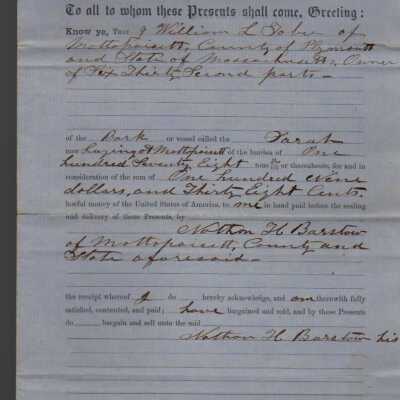 To all to whom these Presents shall come, Greeting:
Know ye, That I William L Tobe of
Mattapoisett, County of Plymouth
and State of Massachusetts, Owner
of Six Thirty Second parts—
of the Bark or vessel called the Sarah
now Laying at Mattapoisett of the burthen of One
hundred Seventy Eight tons or thereabouts, for and in
consideration of the sum of One hundred Nine
dollars, and Thirty Eight Cents.
lawful money of the United States of America, to me in hand paid before the sealing
and delivery of these Presents, by
Nathan H. Barstow
of Mattapoisett, County and
State aforesaid—
the receipt whereof I do hereby acknowledge, and am therewith fully
satisfied, contented, and paid; have bargained and sold, and by these Presents
do bargain and sell unto the said
Nathan H. Barstow his